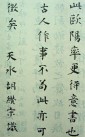 此歐陽率更行意書也
古人作字不苟此亦可
徵矣 天水胡纘宗識